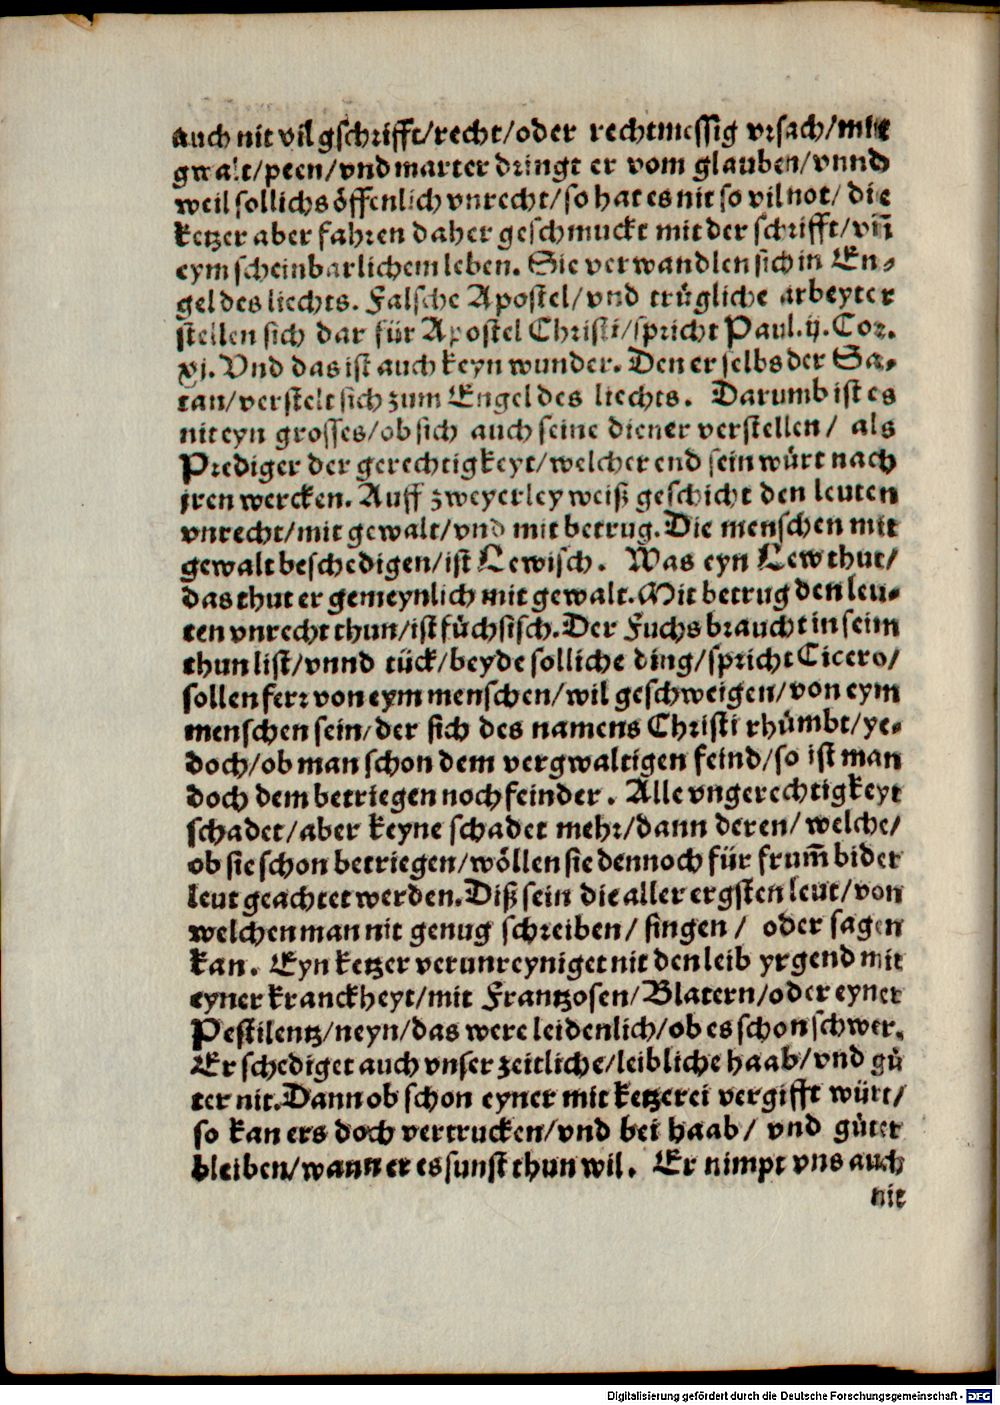 auch nit vil gschrifft/recht/oder rechtmessig vrsach/mit
gwalt/peen/vnd marter dringt er vom glauben/vnnd
weil sollichs öffenlich vnrecht/so hat es nit so vil not/ die
ketzer aber fahren daher geschmuckt mit der schrifft/vñ
eym scheinbarlichem leben. Sie verwandlen sich in En⸗
gel des liechts. Falsche Apostel/vnd trügliche arbeyter
stellen sich dar für Apostel Christi/spricht Paul.ij.Cor.
xj. Vnd das ist auch keyn wunder. Den er selbs der Sa⸗
tan/verstelt sich zum Engel des liechts. Darumb ist es
nit eyn grosses/ob sich auch seine diener verstellen/ als
Prediger der gerechtigkeyt/welcher end sein würt nach
jren wercken. Auff zweyerley weiß geschicht den leuten
vnrecht/mit gewalt/vnd mit betrug. Die menschen mit
gewalt beschedigen/ist Lewisch. Was eyn Lew thut/
das thut er gemeynlich mit gewalt. Mit betrug den leu⸗
ten vnrecht thun/ist füchsisch. Der Fuchs braucht in seim
thun list/vnnd tück/beyde solliche ding/spricht Cicero/
sollen ferr von eym menschen/wil geschweigen/von eym
menschen sein/der sich des namens Christi rhümbt/ye⸗
doch/ob man schon dem vergwaltigen feind/so ist man
doch dem betriegen noch feinder. Alle vngerechtigkeyt
schadet/aber keyne schadet mehr/dann deren/welche/
ob sie schon betriegen/wöllen sie dennoch für frum̃ bider
leut geachtet werden. Diß sein die aller ergsten leut/von
welchen man nit genug schreiben/ singen/ oder sagen
kan. Eyn ketzer verunreyniget nit den leib yrgend mit
eyner kranckheyt/mit Frantzosen/Blatern/oder eyner
Pestilentz/neyn/das were leidenlich/ob es schon schwer.
Er schediget auch vnser zeitliche/leibliche haab/vnd gü
ter nit. Dann ob schon eyner mit ketzerei vergifft würt/
so kan ers doch vertrucken/vnd bei haab/ vnd güter
bleiben/wann er es sunst thun wil. Er nimpt vns auch
nit
Digitalisierung gefördert durch die Deutsche Forschungsgemeinschaft - DFG